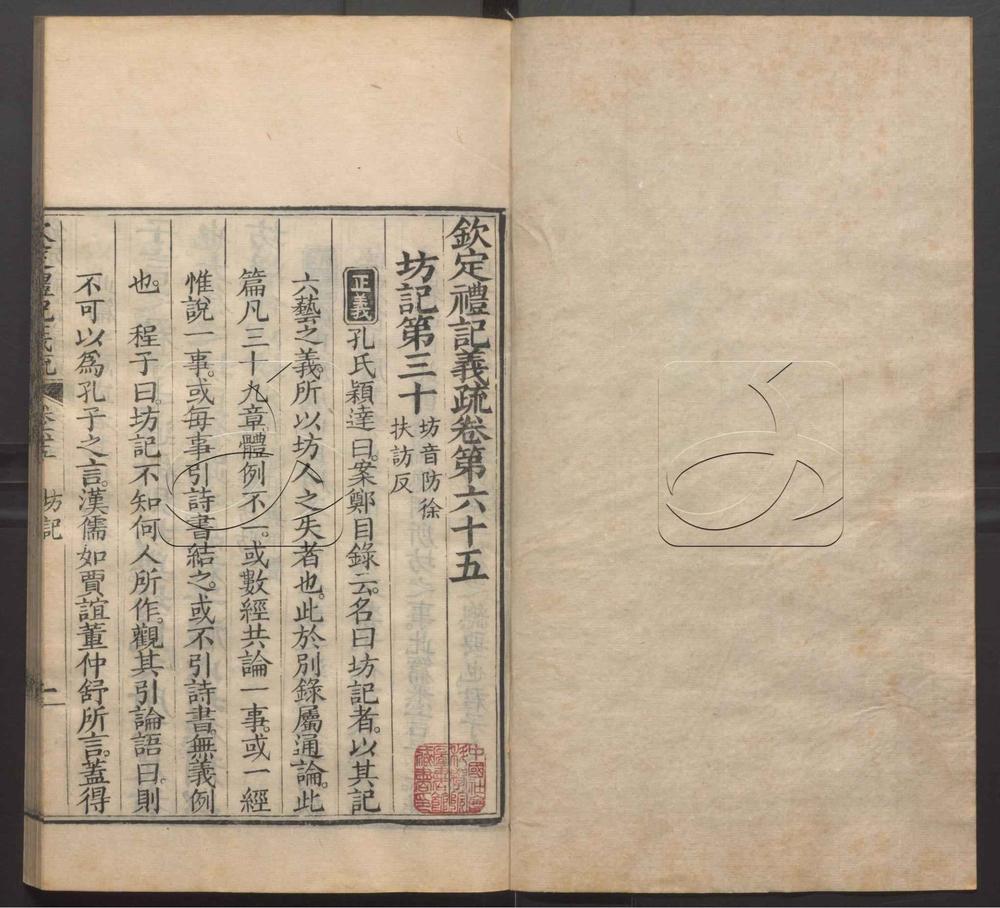 欽定禮記義疏卷第六十五
坊記第三十
坊音防徐
扶訪反
正義 孔氏穎達曰案鄭目錄云名曰坊記者以其記
六藝之義所以坊人之失者也此於別錄屬通論此
篇凡三十九章體例不一或數經共論一事或一經
惟說一事或每事引詩書結之或不引詩書無義例
也 程子曰坊記不知何人所作觀其引論語曰則
不可以爲孔子之言漢儒如賈誼董仲舒所言蓋得
坊記
一